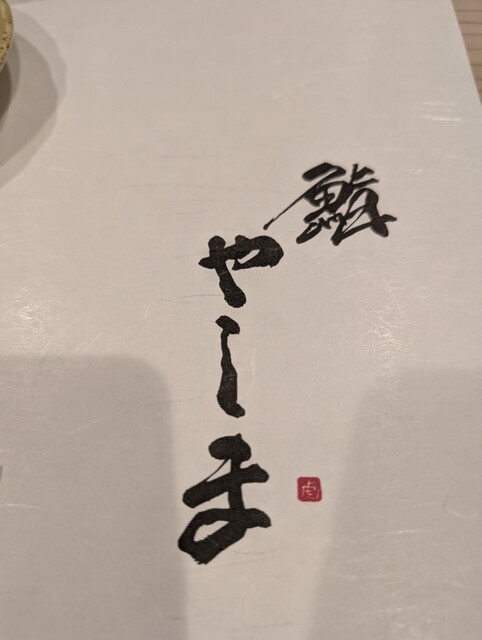 鮨
やしま